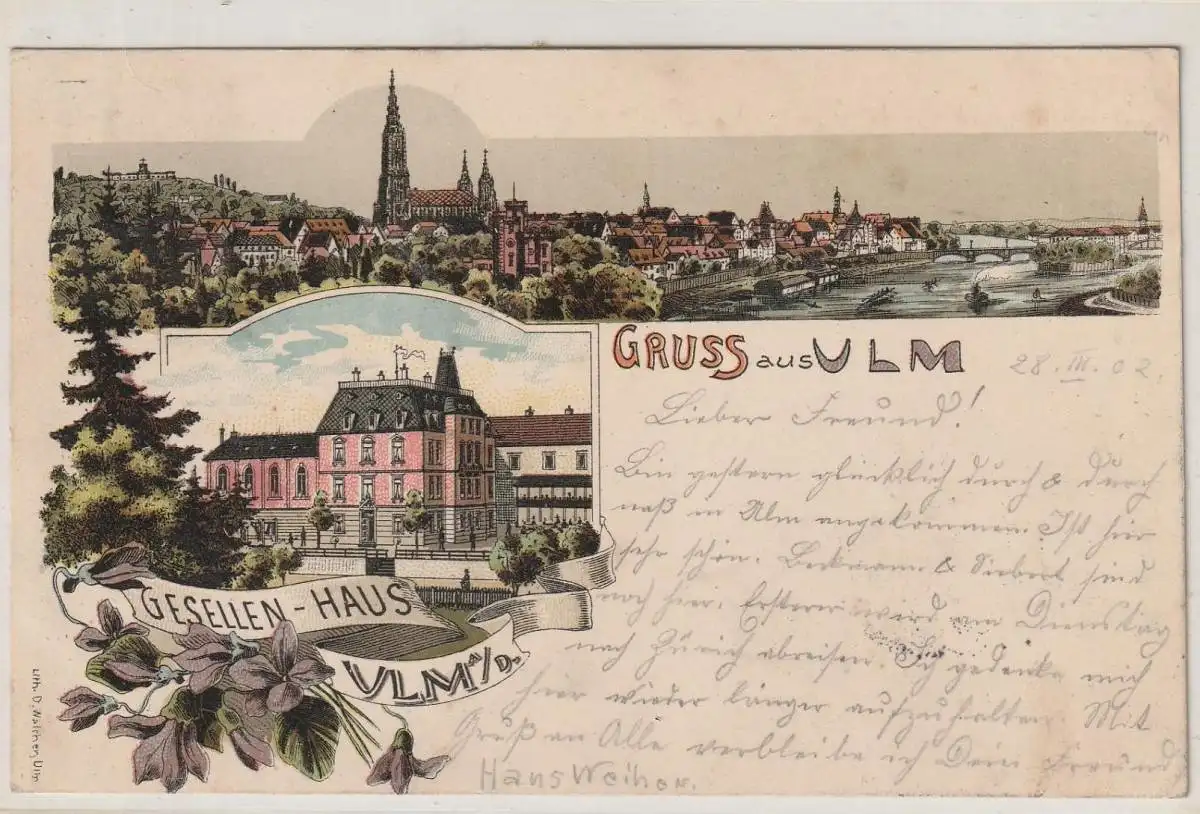 GRUSS aus ULM
28. III. 02.
Lieber Freund!
Bin gestern glücklich durch & durch
naß in Ulm angekommen. Ist hier
sehr schön. Beckmann & Siebert sind
noch hier. Ersterer wird am Dienstag
nach Zürich abreisen. Ich gedenke mich
hier wieder länger aufzuhalten. Mit
Gruß an Alle verbleibe ich Dein Freund
Hans
GESELLEN-HAUS
ULM a/D.
Lith. D. Ulm